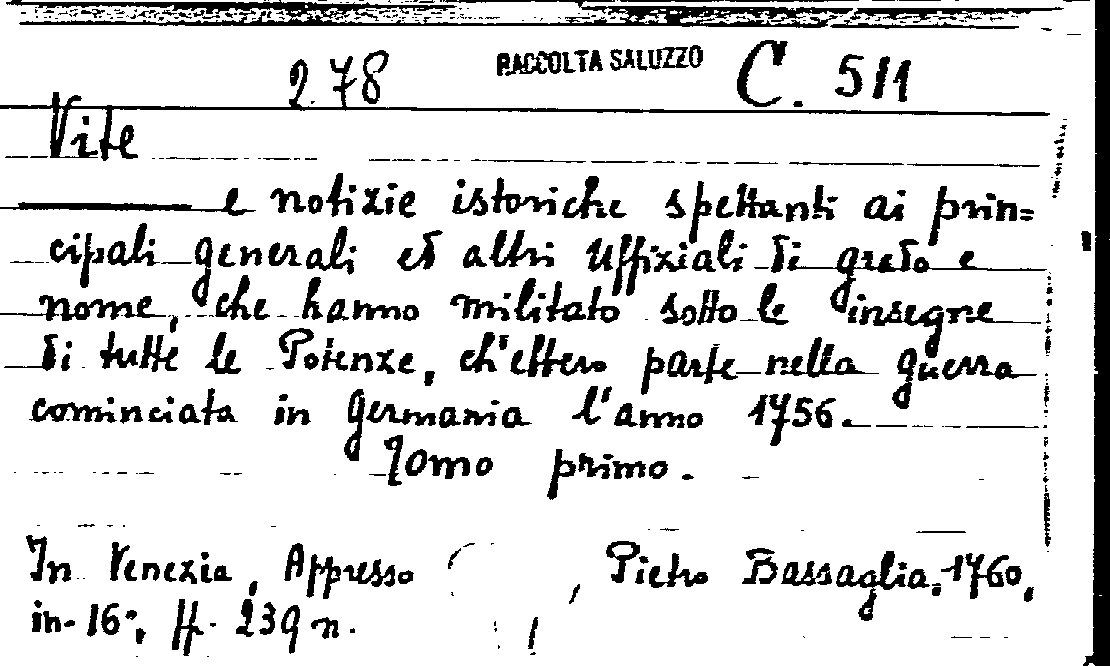 278 RACCOLTA SALUZZO C. 511
Vite
e notizie istoriche spettanti ai prin=
cipali generali ed altri Uffiziali di grado e
nome, che hanno militato sotto le insegne
di tutte le Potenze, ch'ebbero parte nella guerra
cominciata in Germania l'anno 1756.
Tomo primo.
In Venezia, Appresso , Pietro Bassaglia, 1760,
in-16°, ff. 239 n.